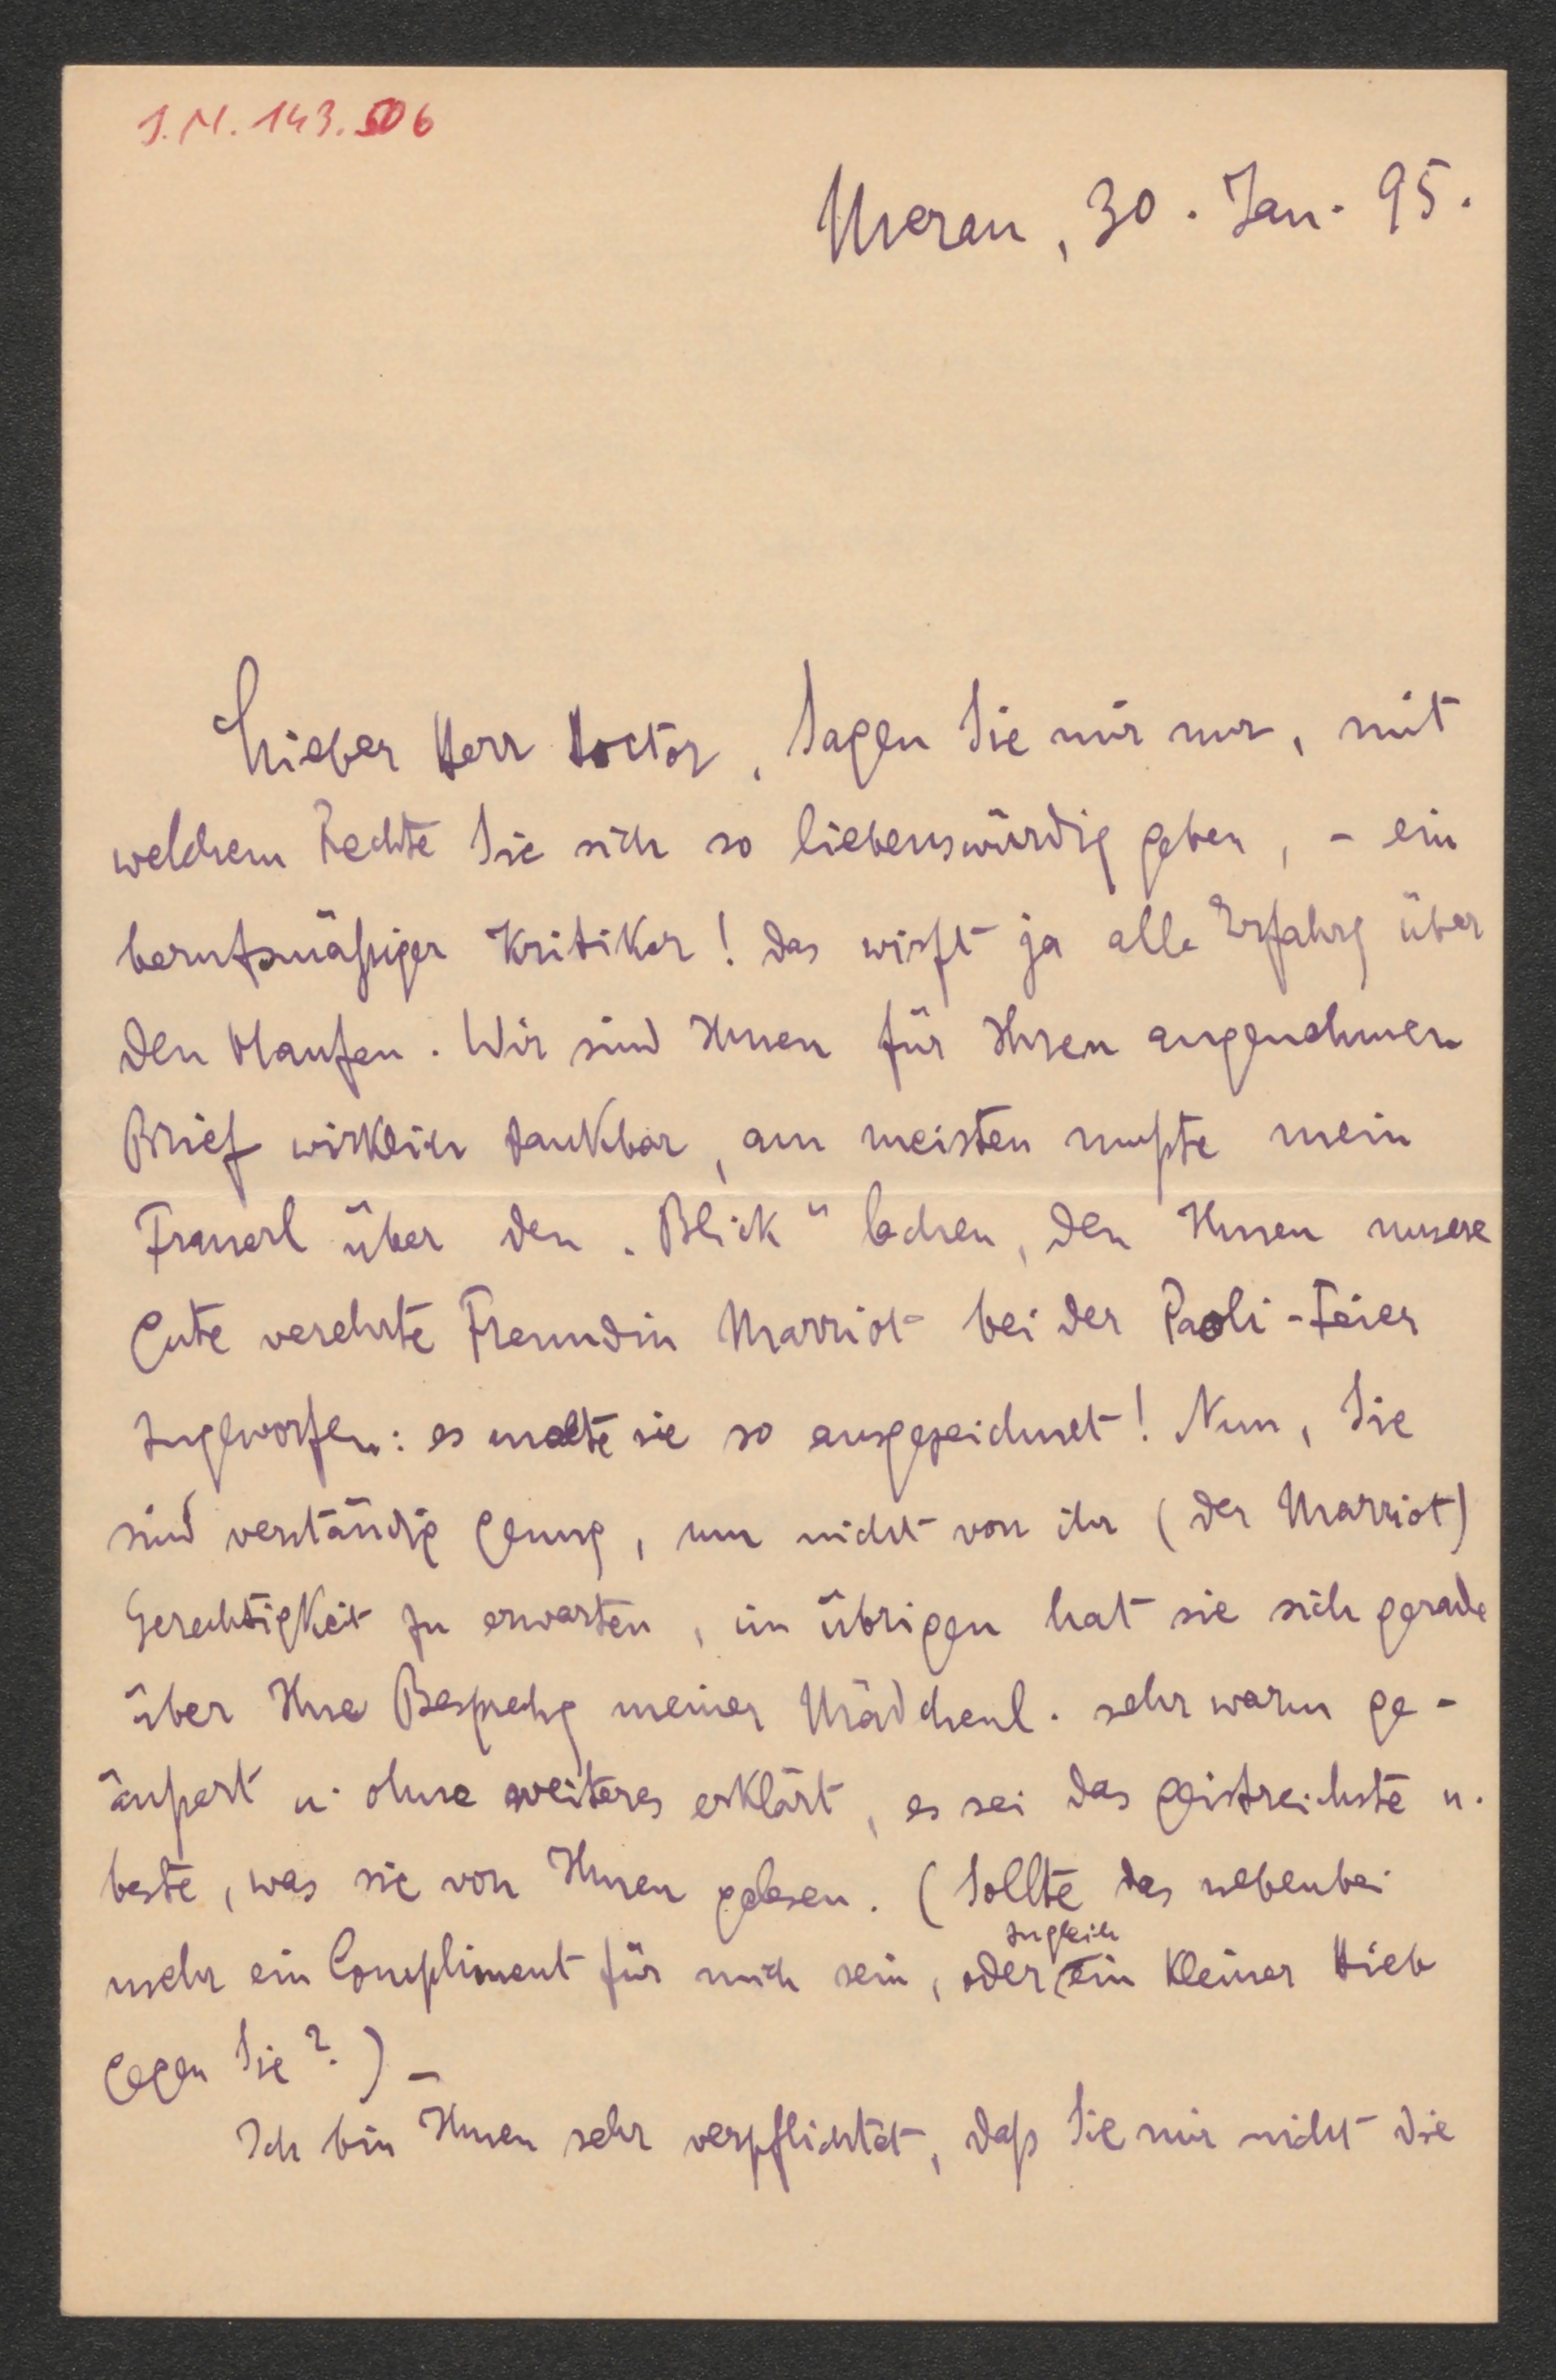 I.N. 143.506
Meran, 30. Jan. 95.
Lieber Herr Doctor, Sagen Sie mir nur, mit
welchem Rechte Sie sich so liebenswürdig geben, – ein
berufsmäßiger Kritiker! Das wirft ja alle Erfahrg über
den Haufen. Wir sind Ihnen für Ihren angenehmen
Brief wirklich dankbar, am meisten mußte mein
Frauerl über den „Blick“ lachen, den Ihnen unsere
gute verehrte Freundin Marriot bei der Paoli-Feier
zugeworfen: es malte sie so ausgezeichnet! Nun, Sie
sind verständig genug, um nicht von ihr (der Marriot)
Gerechtigkeit zu erwarten, im übrigen hat sie sich gerade
über Ihre Besprechg meiner Mädchenl. sehr warm ge-
äußert u. ohne weiteres erklärt, es sei das geistreichste u.
beste, was sie von Ihnen gelesen. (Sollte das nebenbei
zugleich
mehr ein Compliment für mich sein, oder ein kleiner Hieb
gegen Sie?) –
Ich bin Ihnen sehr verpflichtet, daß Sie mir nicht die